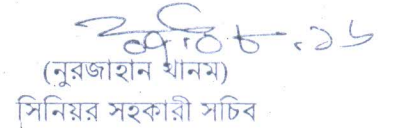 (নুরজাহান খানম)
সিনিয়র সহকারী সচিব